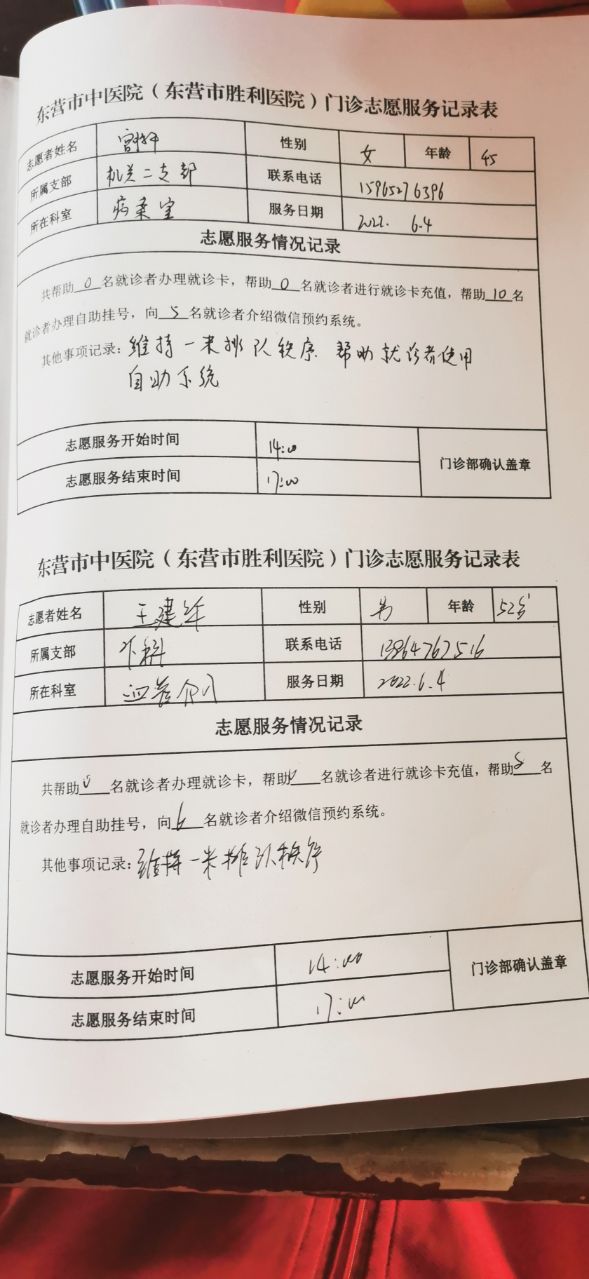 东营市中医院（东营市胜利医院）门诊志愿服务记录表
志愿者姓名 性别 女 年龄 45
所属支部 机关二支部 联系电话 15965276396
所在科室 病案室 服务日期 2022. 6.4
志愿服务情况记录
共帮助0名就诊者办理就诊卡，帮助0名就诊者进行就诊卡充值，帮助10名
就诊者办理自助挂号，向5名就诊者介绍微信预约系统。
其他事项记录：维持一米排队秩序 帮助就诊者使用
自助系统
志愿服务开始时间 14:00
门诊部确认盖章
志愿服务结束时间 17:00
东营市中医院（东营市胜利医院）门诊志愿服务记录表
志愿者姓名 王建 性别 男 年龄 52岁
所属支部 外科 联系电话 13864767516
所在科室 血管介入 服务日期 2022.6.4
志愿服务情况记录
共帮助0名就诊者办理就诊卡，帮助名就诊者进行就诊卡充值，帮助8名
就诊者办理自助挂号，向6名就诊者介绍微信预约系统。
其他事项记录：维持一米排队秩序
志愿服务开始时间 14:00
门诊部确认盖章
志愿服务结束时间 17:00